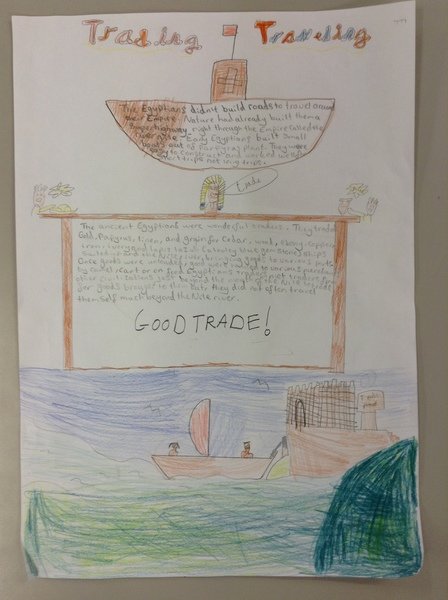 Trading Traveling
The Egyptians didn't build roads to travel around
their Empire. Nature had already built them a
Superhighway right through the Empire called the
River Nile. Early Egyptians built Small
boats out of Papyrus plant. They were
easy to construct and worked well
short trips not long trips.
trade
The ancient Egyptians were wonderful traders. They traded
Gold, Papyrus, linen, and grain for Cedar, wood, ebony, copper
iron, ivory and lapis lazuli a lovely blue gem stone ships
Sailed up and the Nile river, bring goods to various ports
Once goods were unloaded, good were to various
by camel, cart or on foot. Egyptians
other civilations just beyond the of the Nile
for goods brought to them but they did not often travel
them self much beyond the Nile river.
GOOD TRADE!